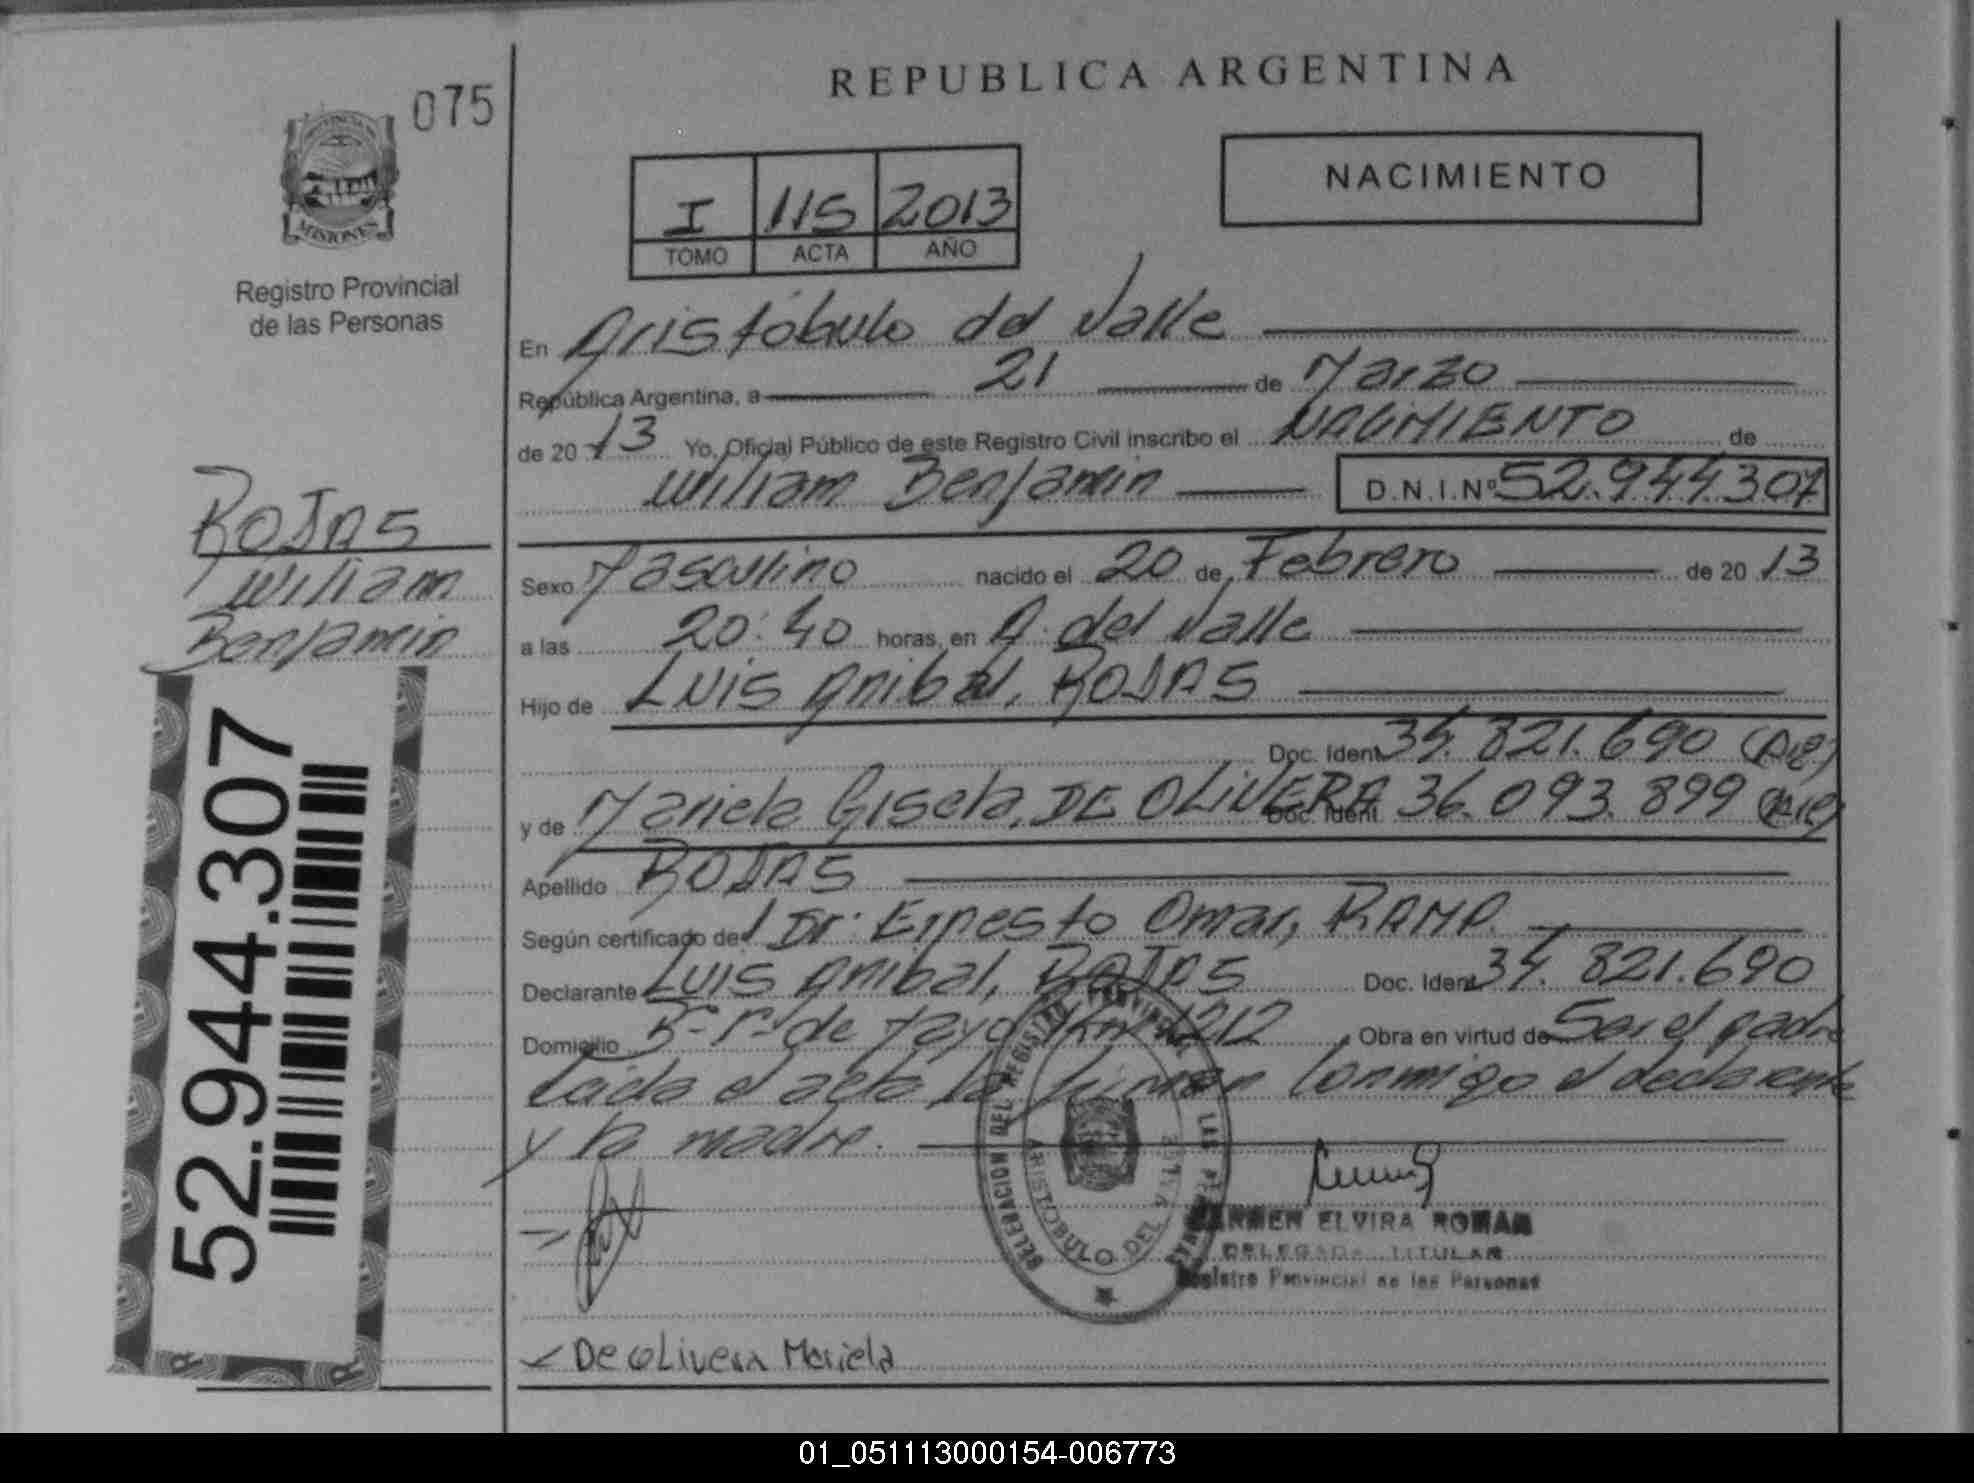 075
REPUBLICA ARGENTINA
PROVINCIA DE
MISIONES
Registro Provincial
de las Personas
I 115 2013
TOMO ACTA AÑO
NACIMIENTO
En Aristóbulo del Valle
República Argentina, a 21 de Marzo
de 2013 Yo, Oficial Público de este Registro Civil inscribo el NACIMIENTO de
Wiliam Benjamin D.N.I.Nº 52.944.307
ROJAS
Wiliam
Benjamin
Sexo Masculino nacido el 20 de Febrero de 2013
a las 20:40 horas, en A. del Valle
Hijo de Luis Anibal, ROJAS
Doc. Ident. 34.821.690 (Arg)
y de Mariela Gisela, DE OLIVERA Doc. Ident. 36.093.899 (Arg)
Apellido ROJAS
Según certificado del Dr. Ernesto Omar, RAMA.
Declarante Luis Anibal, ROJAS Doc. Ident. 34.821.690
Domicilio Bº 1º de Mayo Km 1212 Obra en virtud de Ser el padre
Leida el acta la firman Conmigo el declarante
y la madre.
DELEGACION DEL REGISTRO PROVINCIAL DE LAS PERSONAS
ARISTOBULO DEL VALLE
CARMEN ELVIRA ROMAN
DELEGADA TITULAR
Registro Provincial de las Personas
De oLivera Mariela
52.944.307
01_051113000154-006773